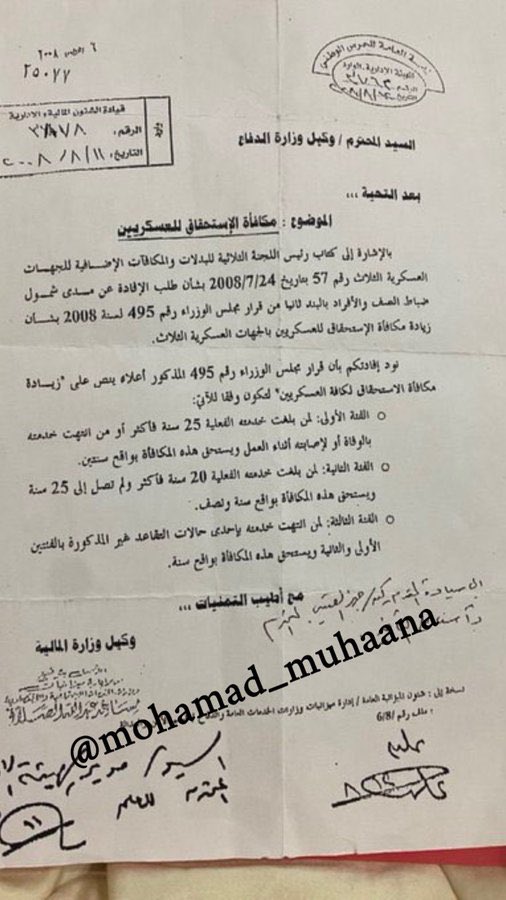 ٦ اغسطس ٢٠٠٨
٢٥٠٧٧
الحرس الوطني
قيادة الشئون المالية والادارية
الرقم:
التاريخ: ٢٠٠٨/٨/١١
السيد المحترم / وكيل وزارة الدفاع
بعد التحية ...
الموضوع : مكافأة الإستحقاق للعسكريين
بالإشارة إلى كتاب رئيس اللجنة الثلاثية للبدلات والمكافآت الإضافية للجهات
العسكرية الثلاث رقم 57 بتاريخ 2008/7/24 بشأن طلب الإفادة عن مدى شمول
ضباط الصف والأفراد بالبند ثانيا من قرار مجلس الوزراء رقم 495 لسنة 2008 بشأن
زيادة مكافأة الإستحقاق للعسكريين بالجهات العسكرية الثلاث.
نود إفادتكم بأن قرار مجلس الوزراء رقم 495 المذكور أعلاه ينص على "زيادة
مكافأة الاستحقاق لكافة العسكريين" لتكون وفقا للآتي:
○ الفئة الأولى: لمن بلغت خدمته الفعلية 25 سنة فأكثر أو من انتهت خدمته
بالوفاة أو لإصابته أثناء العمل ويستحق هذه المكافأة بواقع سنتين.
○ الفئة الثانية: لمن بلغت خدمته الفعلية 20 سنة فأكثر ولم تصل إلى 25 سنة
ويستحق هذه المكافأة بواقع سنة ونصف.
○ الفئة الثالثة: لمن انتهت خدمته بإحدى حالات التقاعد غير المذكورة بالفئتين
الأولى والثانية ويستحق هذه المكافأة بواقع سنة.
مع أطيب التمنيات ...
وكيل وزارة المالية
@mohamad_muhaana
نسخة إلى : شئون الميزانية العامة / إدارة ميزانيات وزارات الخدمات العامة والدفاع
: ملف رقم /6/8